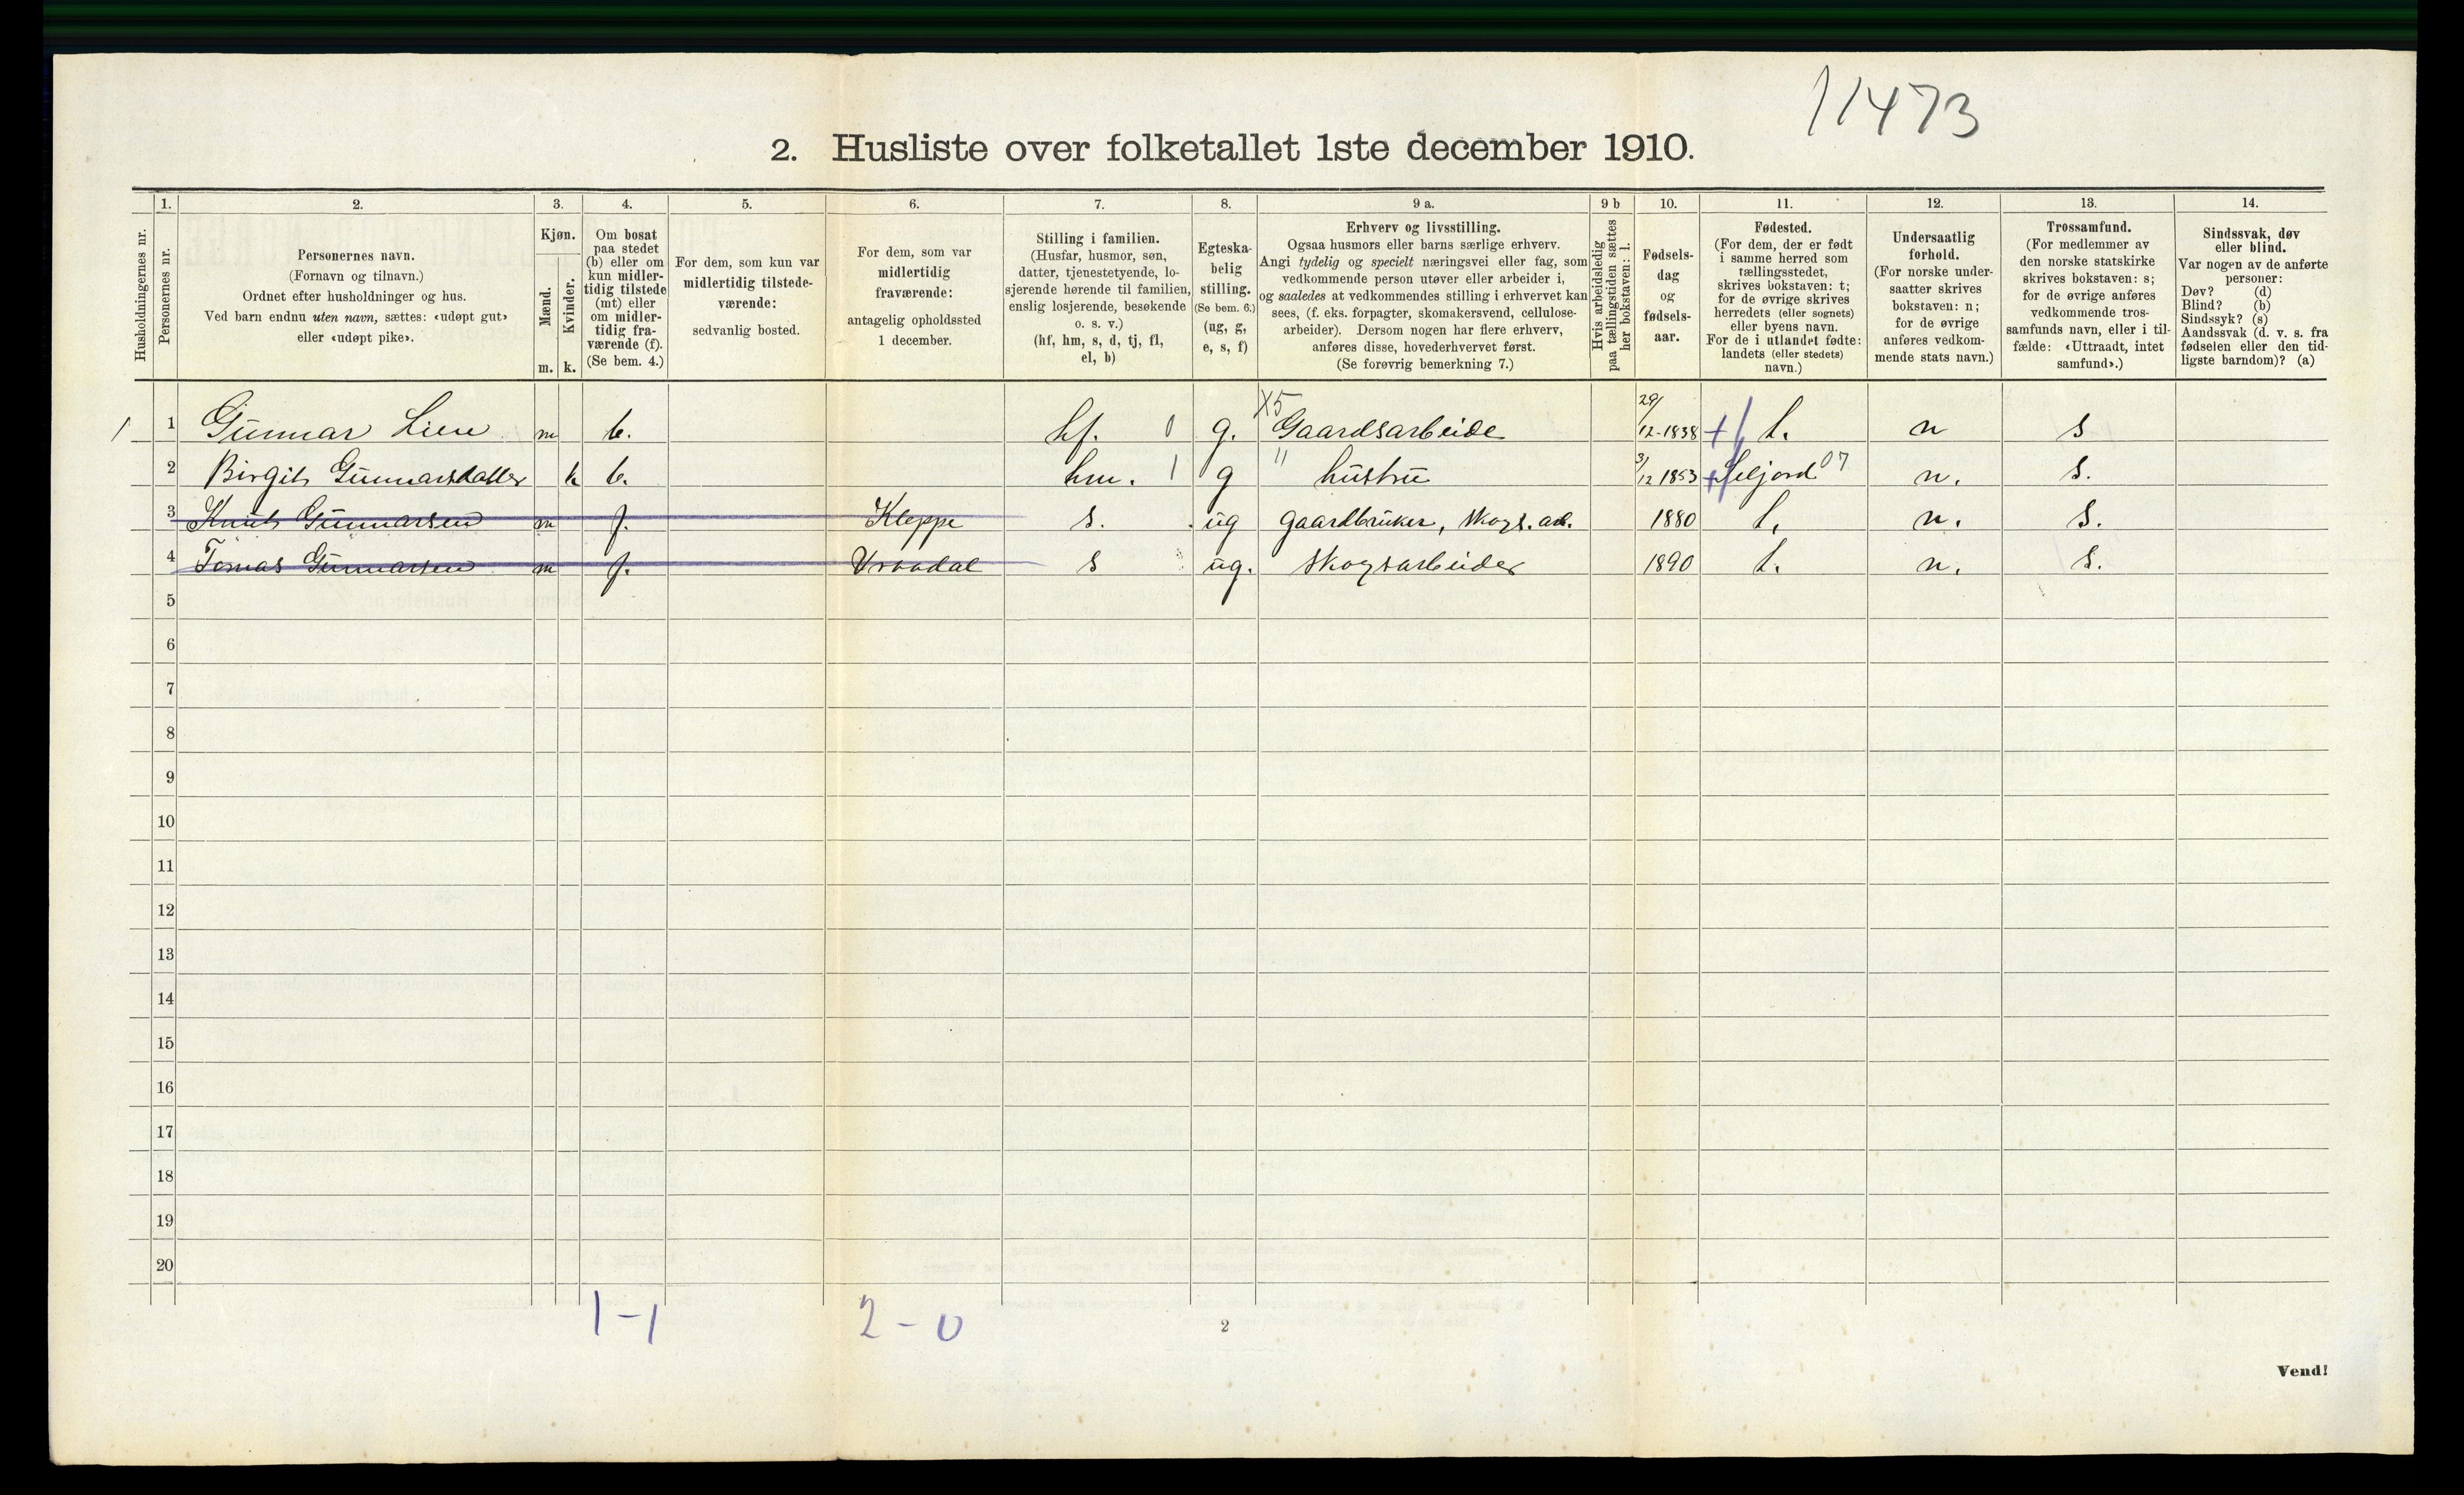 11473
2. Husliste over folketallet 1ste december 1910.
Husholdningernes nr.
1.
Personernes nr.
2.
Personernes navn.
(Fornavn og tilnavn.)
Ordnet efter husholdninger og hus.
Ved barn endnu uten navn, sættes: «udøpt gut»
eller «udøpt pike».
3.
Kjøn.
Mænd.
Kvinder.
m. k.
4.
Om bosat
paa stedet
(b) eller om
kun midler-
tidig tilstede
(mt) eller
om midler-
tidig fra-
værende (f).
(Se bem. 4.)
5.
For dem, som kun var
midlertidig tilstede-
værende:
sedvanlig bosted.
6.
For dem, som var
midlertidig
fraværende:
antagelig opholdssted
1 december.
7.
Stilling i familien.
(Husfar, husmor, søn,
datter, tjenestetyende, lo-
sjerende hørende til familien,
enslig losjerende, besøkende
o. s. v.)
(hf, hm, s, d, tj, fl,
el, b)
8.
Egteska-
belig
stilling.
(Se bem. 6.)
(ug, g,
e, s, f)
9 a.
Erhverv og livsstilling.
Ogsaa husmors eller barns særlige erhverv.
Angi tydelig og specielt næringsvei eller fag, som
vedkommende person utøver eller arbeider i,
og saaledes at vedkommendes stilling i erhvervet kan
sees, (f. eks. forpagter, skomakersvend, cellulose-
arbeider). Dersom nogen har flere erhverv,
anføres disse, hovederhvervet først.
(Se forøvrig bemerkning 7.)
9 b
Hvis arbeidsledig
paa tællingstiden sættes
her bokstaven: l.
10.
Fødsels-
dag
og
fødsels-
aar.
11.
Fødested.
(For dem, der er født
i samme herred som
tællingsstedet,
skrives bokstaven: t;
for de øvrige skrives
herredets (eller sognets)
eller byens navn.
For de i utlandet fødte:
landets (eller stedets)
navn.)
12.
Undersaatlig
forhold.
(For norske under-
saatter skrives
bokstaven: n;
for de øvrige
anføres vedkom-
mende stats navn.)
13.
Trossamfund.
(For medlemmer av
den norske statskirke
skrives bokstaven: s;
for de øvrige anføres
vedkommende tros-
samfunds navn, eller i til-
fælde: «Uttraadt, intet
samfund».)
14.
Sindssvak, døv
eller blind.
Var nogen av de anførte
personer:
Døv? (d)
Blind? (b)
Sindssyk? (s)
Aandssvak (d. v. s. fra
fødselen eller den tid-
ligste barndom)? (a)
1 1 Gunnar Lien m b. hf. 0 g. X5 Gaardsarbeide 29/12-1838 + t. n s
2 Birgit Gunnarsdatter k b. hm. 1 g " hustru 3/12 1853 + Seljord 07 n. s.
3 Knut Gunnarsen m f. Kleppe s. ug gaardbruker, skogs.arb. 1880 t. n. s.
4 Tomas Gunnarsen m f. Vraadal s ug. skogsarbeider 1890 t. n. s.
5
6
7
8
9
10
11
12
13
14
15
16
17
18
19
20
1-1 2-0
2
Vend!